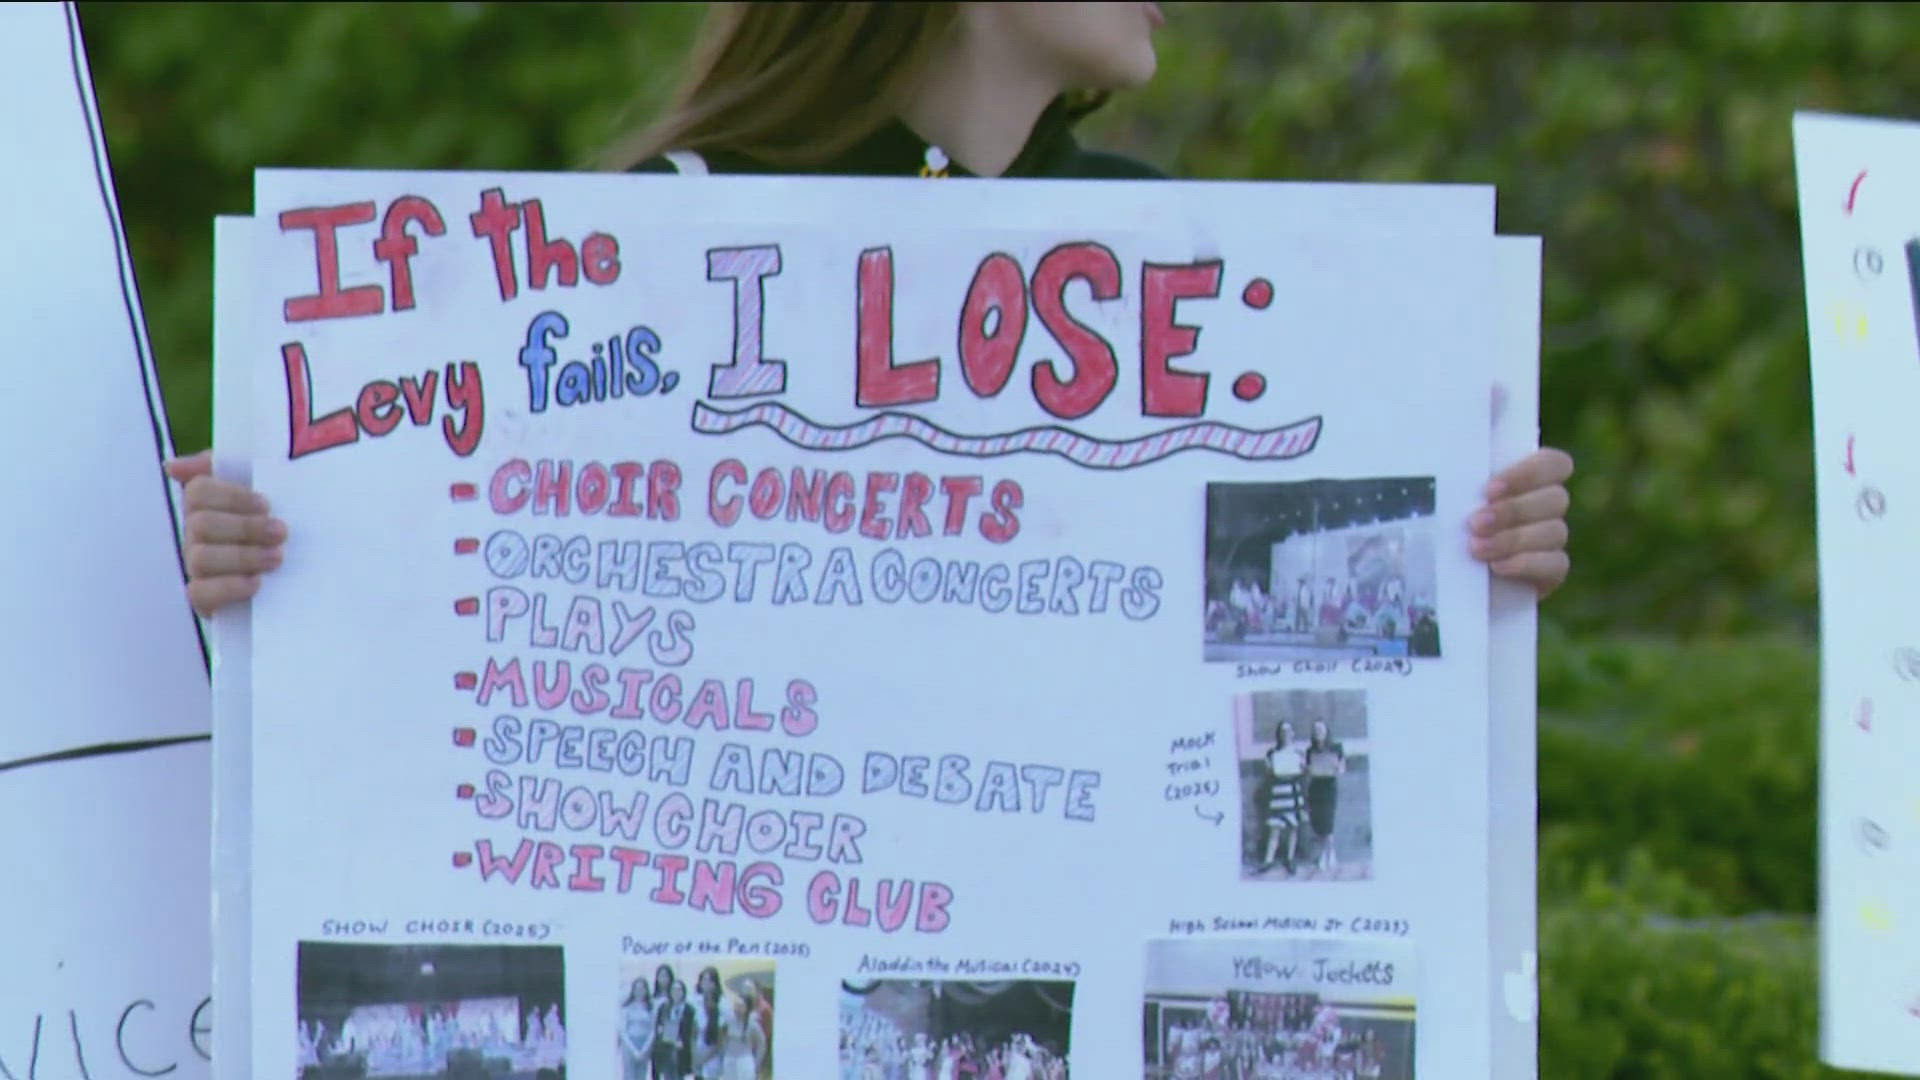 If the
Levy fails,
I LOSE:
-CHOIR CONCERTS
-ORCHESTRA CONCERTS
-PLAYS
-MUSICALS
-SPEECH AND DEBATE
-SHOW CHOIR
-WRITING CLUB
Show Choir (2024)
Mock
Trial
(2025)
SHOW CHOIR (2025)
Power of the Pen (2025)
Aladdin the Musical (2024)
High School Musical Jr (2023)
Yellow Jackets
VICE